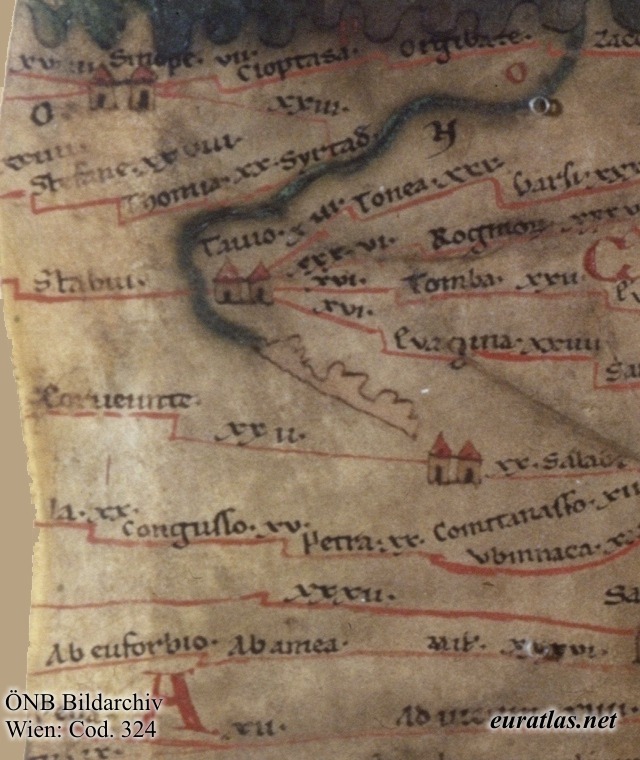 xv Sinope. vii. Cloptasa. Orgibate. Zac
O
xxiii.
xxiiii
Stefane. xxviii
H
Thomia. xx. Syrtas
Tonea. xxx.
Varsi. xxx
Tavio. xiii
xxxvi. Rogmon. xxxv
Stabiu.
xvi. Tomba. xxii
xvi.
Evagina. xxiiii
Corveunte.
xxii.
xx. Salab
la. xx.
Congusso. xv.
Petra. xx. Comitanasso. xii
Ubinnaca. x
xxxii. Sa
Ab euforbio. Ab amea. mil. xxxvi.
A
xii. Ad
ÖNB Bildarchiv
Wien: Cod. 324
euratlas.net